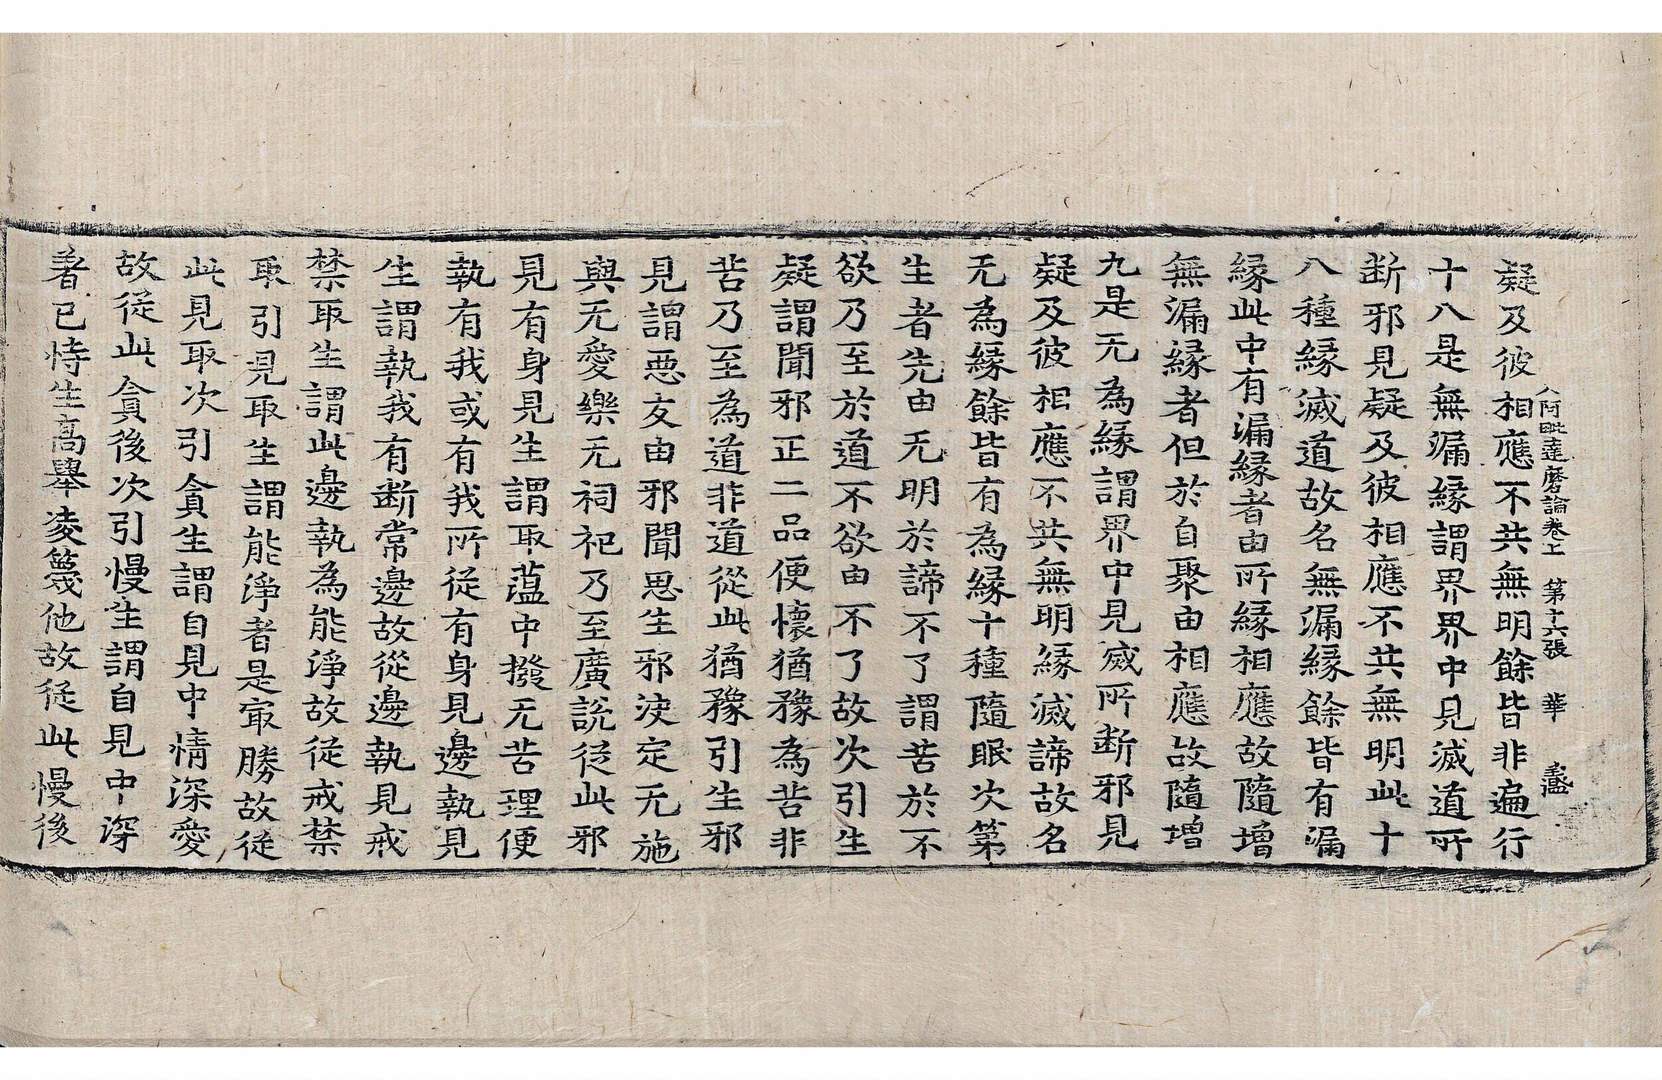 入阿毗達磨論卷上 第十六張 華
疑及彼相應不共無明餘皆非遍行
十八是無漏緣謂界界中見滅道所
断邪見疑及彼相應不共無明此十
八種緣滅道故名無漏緣餘皆有漏
緣此中有漏緣者由所緣相應故隨增
無漏緣者但於自聚由相應故隨增
九是无為緣謂界中見滅所断邪見
疑及彼相應不共無明緣滅諦故名
无為緣餘皆有為緣十種隨眠次第
生者先由无明於諦不了謂苦於不
欲乃至於道不欲由不了故次引生
疑謂聞邪正二品便懷猶豫為苦非
苦乃至為道非道從此猶豫引生邪
見謂惡友由邪聞思生邪決定无施
與无愛樂无祠祀乃至廣說從此邪
見有身見生謂取蘊中撥无苦理便
執有我或有我所從有身見邊執見
生謂執我有断常邊故從邊執見戒
禁取生謂此邊執為能淨故從戒禁
取引見取生謂能淨者是㝡勝故從
此見取次引貪生謂自見中情深愛
故從此貪後次引慢生謂自見中深
著已恃生高舉凌篾他故從此慢後